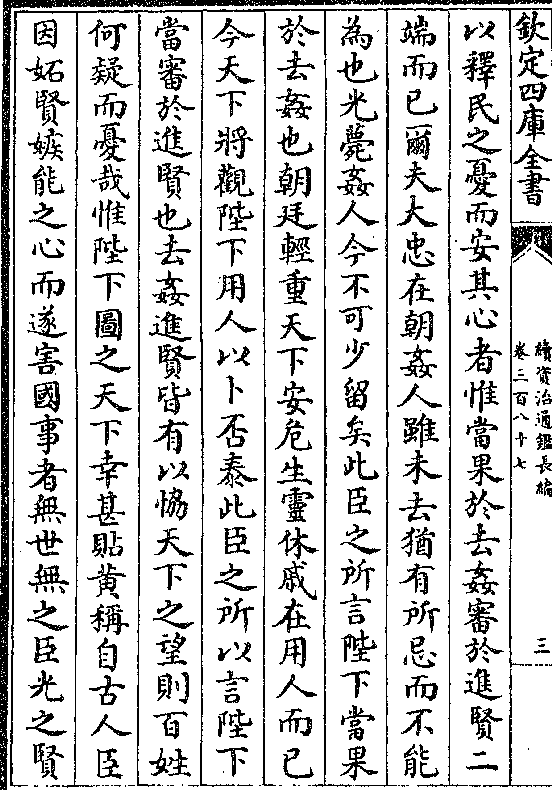 欽定四庫全書
續資治通鑑長編
卷三百八十七
三
以釋民之憂而安其心者惟當果於去姦審於進賢二
端而已爾夫大忠在朝姦人雖未去猶有所忌而不能
為也光薨姦人今不可少留矣此臣之所言陛下當果
於去姦也朝廷輕重天下安危生靈休戚在用人而已
今天下將觀陛下用人以卜否泰此臣之所以言陛下
當審於進賢也去姦進賢皆有以恊天下之望則百姓
何疑而憂哉惟陛下圖之天下幸甚貼黄稱自古人臣
因妬賢嫉能之心而遂害國事者無世無之臣光之賢